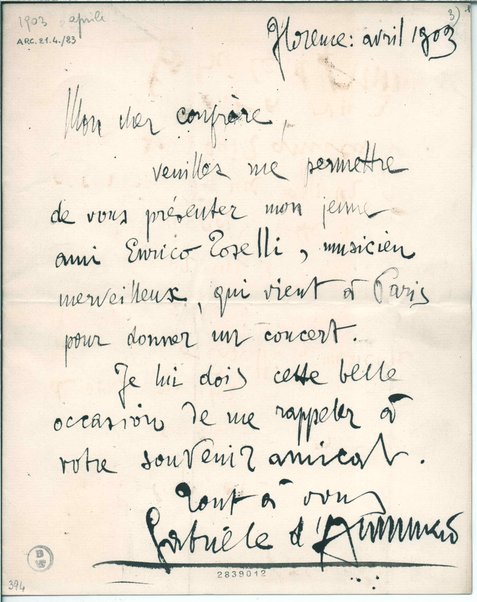 1903 aprile
ARC. 21.4./83
3)
Florence: avril 1903
Mon cher confrère,
veuillez me permettre
de vous présenter mon jeune
ami Enrico Toselli, musicien
merveilleux, qui vient à Paris
pour donner un concert.
Je lui dois cette belle
occasion de me rappeler à
votre souvenir amical.
Tout à vous
Gabriele d'Annunzio
2839012
394